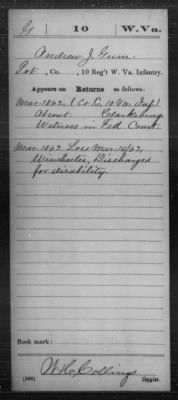 G | 10 | W.Va.
Andrew J. Gum
Pvt, Co. , 10 Reg't W. Va. Infantry.
Appears on Returns as follows:
Mar. 1862 (Co. D, 10 Va. Inf.)
Absent. Clarksburg
Witness in Fed Court
Mar. 1863. Loss Mar. 10/63,
Winchester, Discharged
for disability.
Book mark:
W. H. Collings
(546) Copyist.